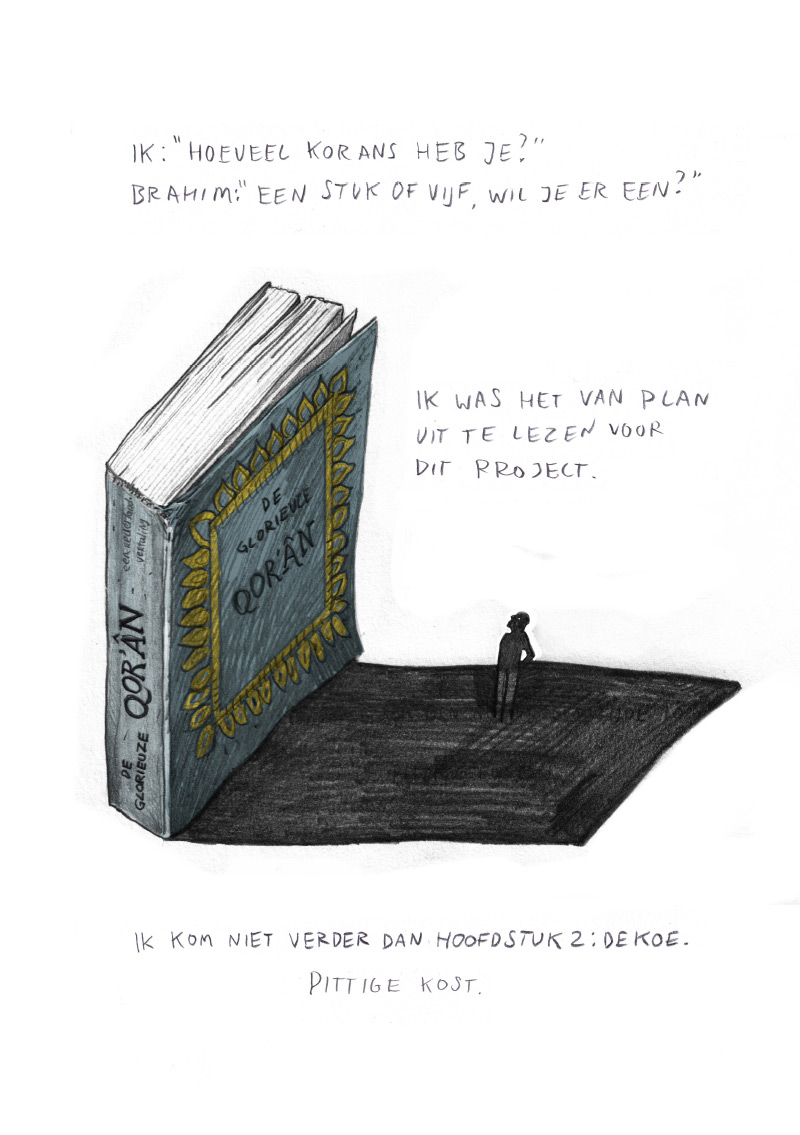 IK: "HOEVEEL KORANS HEB JE?"
BRAHIM: "EEN STUK OF VIJF, WIL JE ER EEN?"
IK WAS HET VAN PLAN
UIT TE LEZEN VOOR
DIT PROJECT.
DE
GLORIEUZE
QOR'ÂN
DE
GLORIEUZE
QOR'ÂN
vertaling
IK KOM NIET VERDER DAN HOOFDSTUK 2: DE KOE.
PITTIGE KOST.